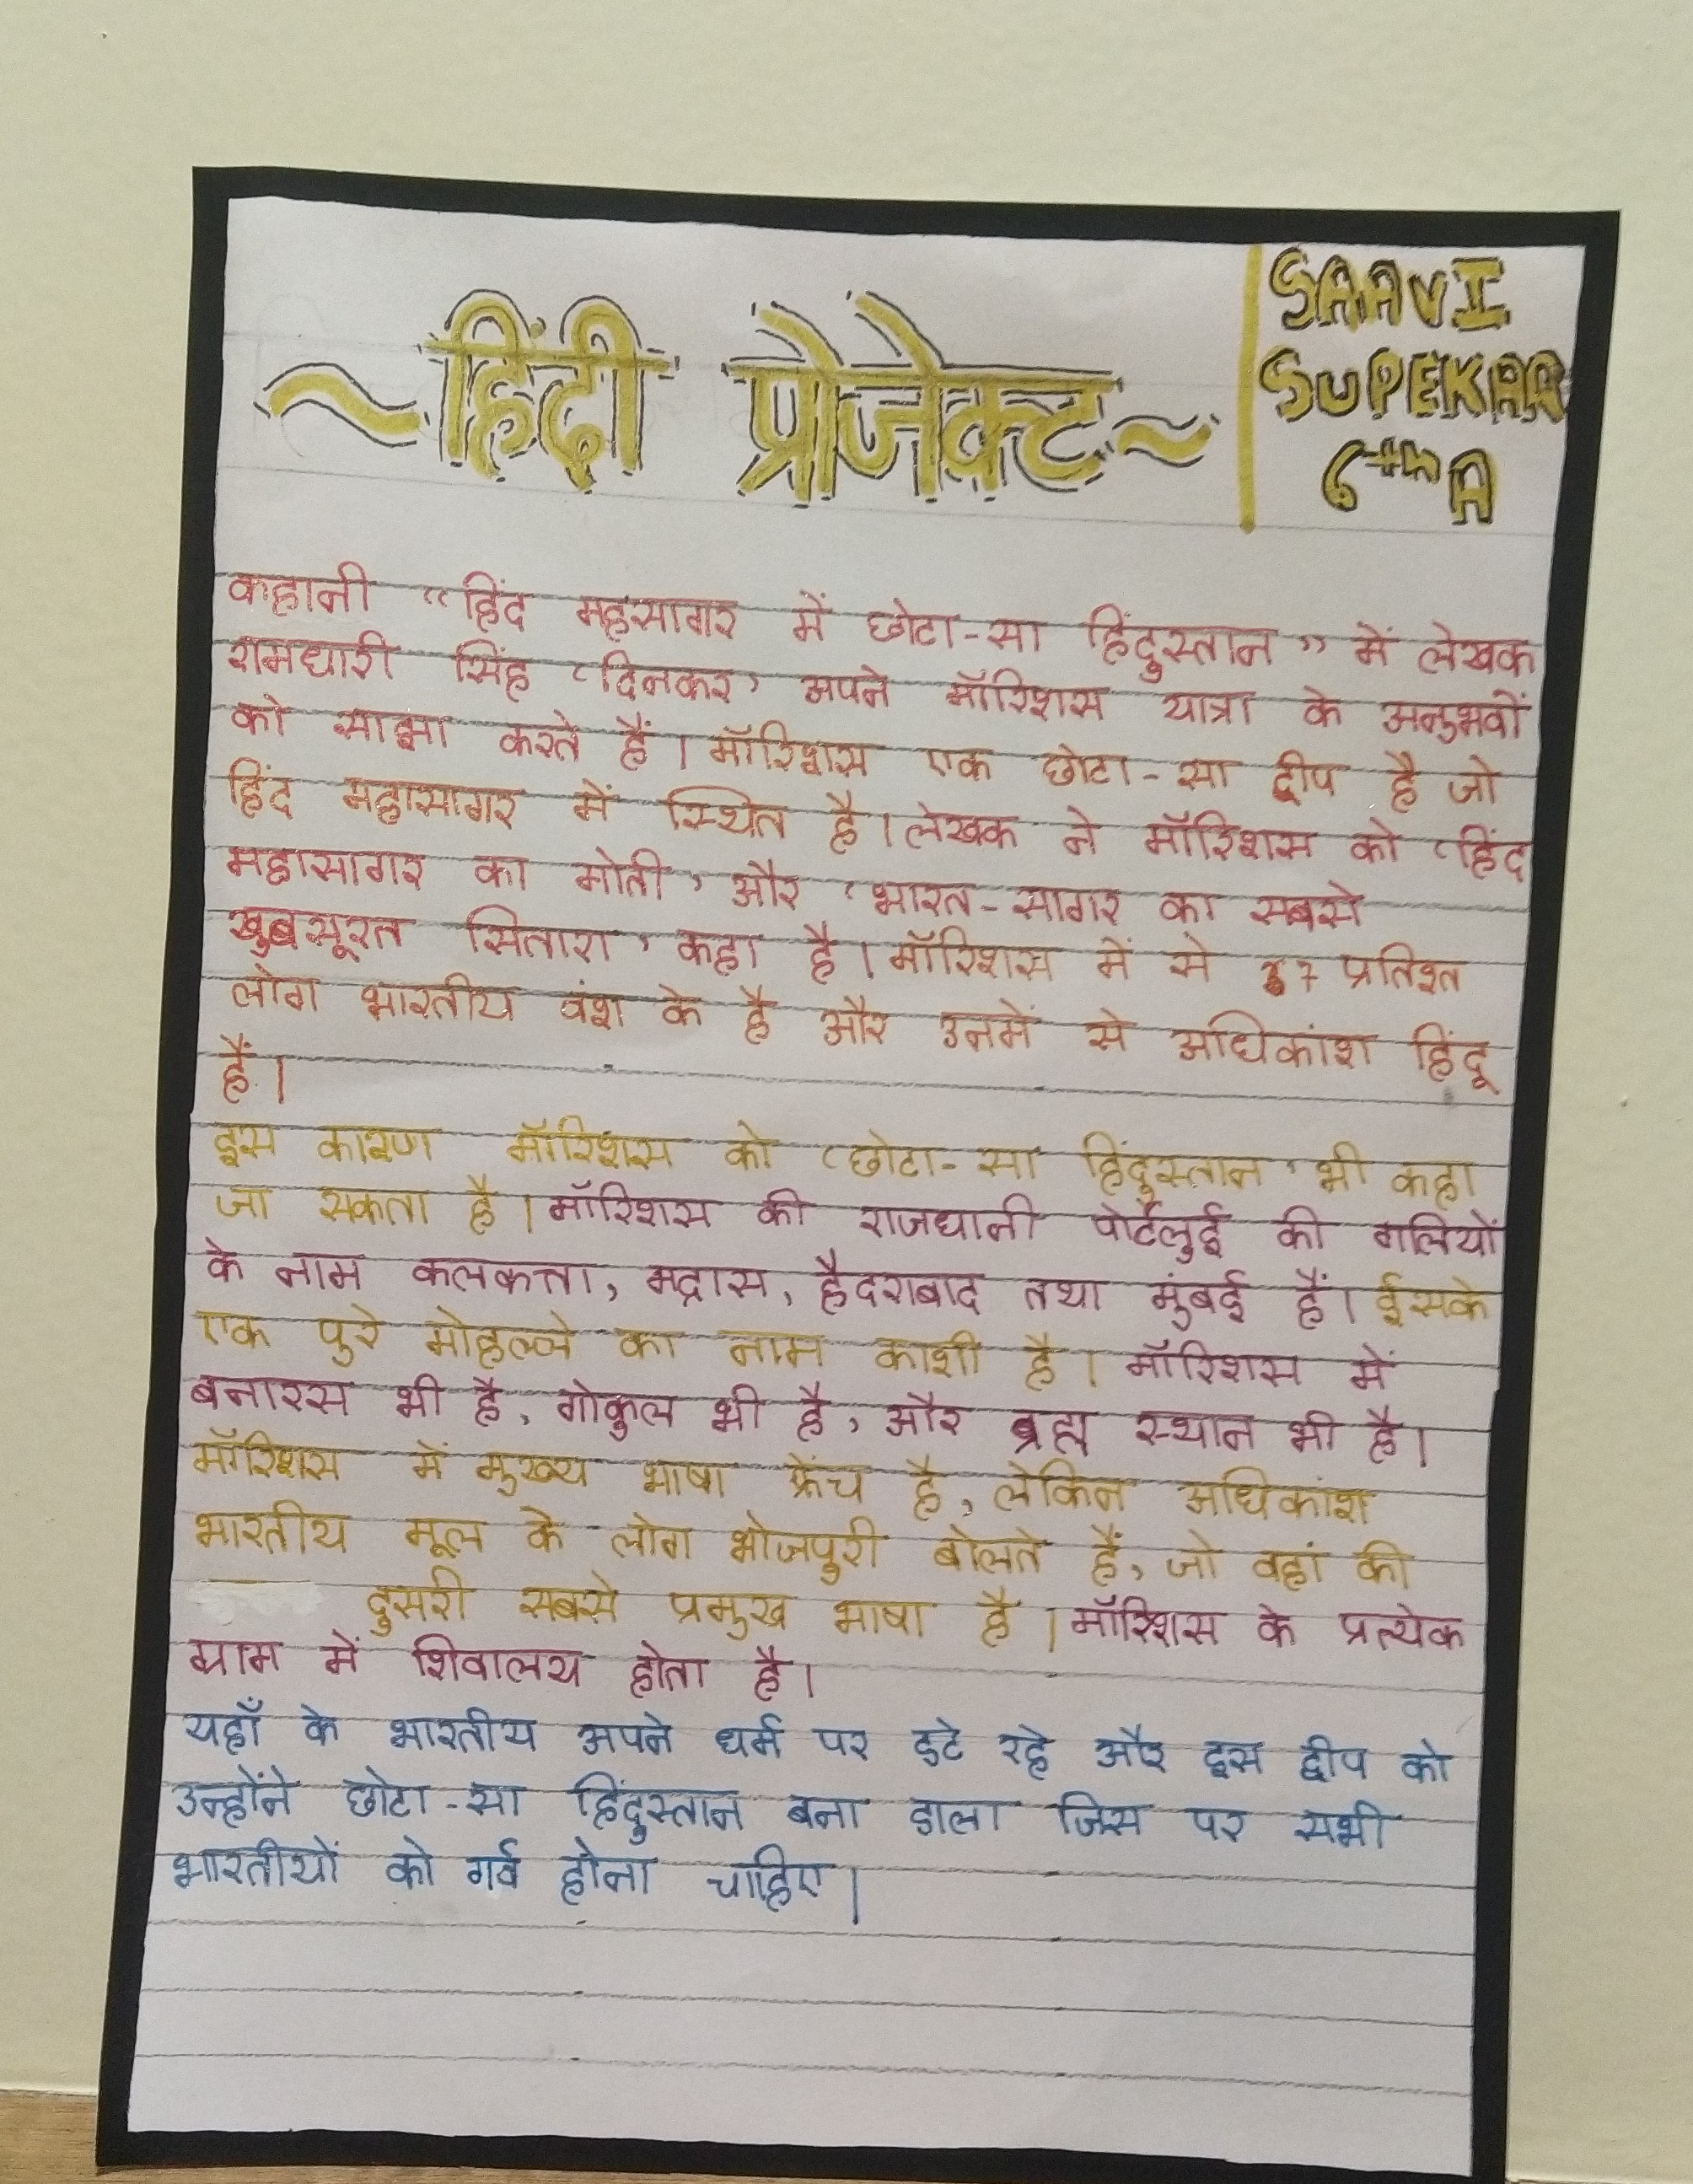 ~हिंदी प्रोजेक्ट~
SAAVI
SUPEKAR
6th A
कहानी "हिंद महसागर में छोटा-सा हिंदुस्तान" में लेखक
रामधारी सिंह 'दिनकर' अपने मॉरिशस यात्रा के अनुभवों
को साझा करते हैं। मॉरिशस एक छोटा-सा द्वीप है जो
हिंद महासागर में स्थित है। लेखक ने मॉरिशस को 'हिंद
महासागर का मोती' और 'भारत-सागर का सबसे
खुबसूरत सितारा' कहा है। मॉरिशस में से 67 प्रतिश्त
लोग भारतीय वंश के है और उनमें से अधिकांश हिंदू
हैं।
इस कारण मॉरिशस को 'छोटा-सा हिंदुस्तान' भी कहा
जा सकता है। मॉरिशस की राजधानी पोर्टलुई की गलियों
के नाम कलकत्ता, मद्रास, हैदराबाद तथा मुंबई हैं। ईसके
एक पुरे मोहल्ले का नाम काशी है। मॉरिशस में
बनारस भी है, गोकुल भी है, और ब्रह्म स्थान भी है।
मॉरिशस में मुख्य भाषा फ्रेंच है, लेकिन अधिकांश
भारतीय मूल के लोग भोजपुरी बोलते हैं, जो वहां की
दुसरी सबसे प्रमुख भाषा है। मॉरिशस के प्रत्येक
ग्राम में शिवालय होता है।
यहाँ के भारतीय अपने धर्म पर डटे रहे और इस द्वीप को
उन्होंने छोटा-सा हिंदुस्तान बना डाला जिस पर सभी
भारतीयों को गर्व होना चाहिए।